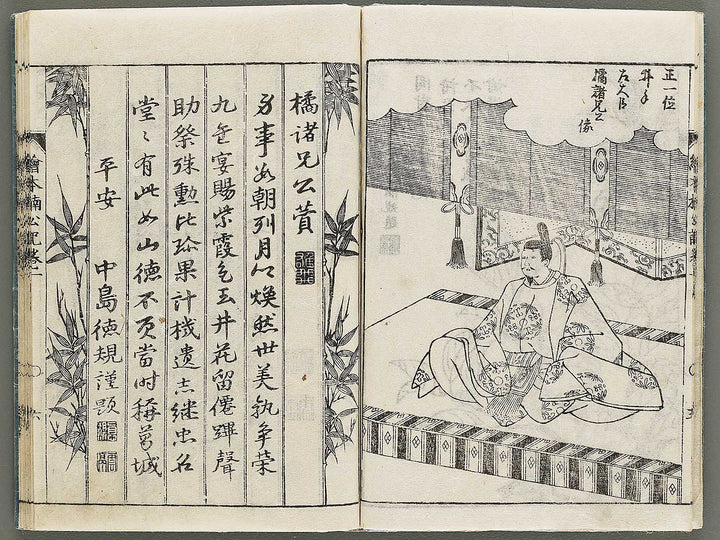 正一位
井手
左大臣
橘諸兄之
像
橘諸兄公賛
身事四朝列月卿煥然世美孰争榮
九重宴賜紫霞色玉井花留僊蹕聲
助祭殊勲比珍果計機遺志継忠名
堂々有此如山徳不負當時稱葛城
平安 中島徳規謹題
繪本楠公記巻二
六